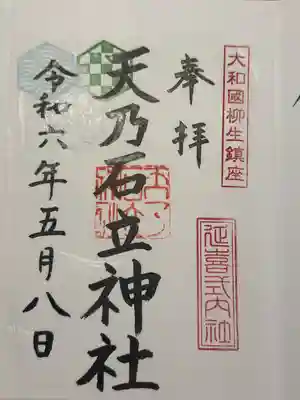 大和國柳生鎮座
延喜式内社
奉拝
天乃石立神社
令和六年五月八日